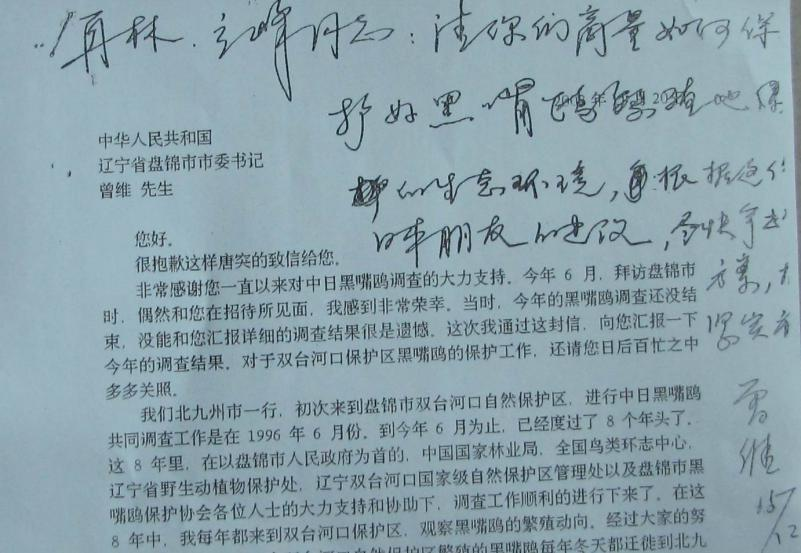 再林、立峰同志：请你们商量如何保
护好黑嘴鸥
的生态环境，再根据这位
日本朋友的建议，尽快拿出
方案，
落实
曾维
15/12
中华人民共和国
辽宁省盘锦市市委书记
曾维 先生
您好。
很抱歉这样唐突的致信给您。
非常感谢您一直以来对中日黑嘴鸥调查的大力支持。今年 6 月，拜访盘锦市
时，偶然和您在招待所见面，我感到非常荣幸。当时，今年的黑嘴鸥调查还没结
束，没能和您汇报详细的调查结果很是遗憾。这次我通过这封信，向您汇报一下
今年的调查结果。对于双台河口保护区黑嘴鸥的保护工作，还请您日后百忙之中
多多关照。
我们北九州市一行，初次来到盘锦市双台河口自然保护区，进行中日黑嘴鸥
共同调查工作是在 1996 年 6 月份。到今年 6 月为止，已经度过了 8 个年头了。
这 8 年里，在以盘锦市人民政府为首的，中国国家林业局，全国鸟类环志中心，
辽宁省野生动植物保护处，辽宁双台河口国家级自然保护区管理处以及盘锦市黑
嘴鸥保护协会各位人士的大力支持和协助下，调查工作顺利的进行下来了。在这
8 年中，我每年都来到双台河口保护区，观察黑嘴鸥的繁殖动向。经过大家的努
自然保护区繁殖的黑嘴鸥每年冬天都迁徙到北九